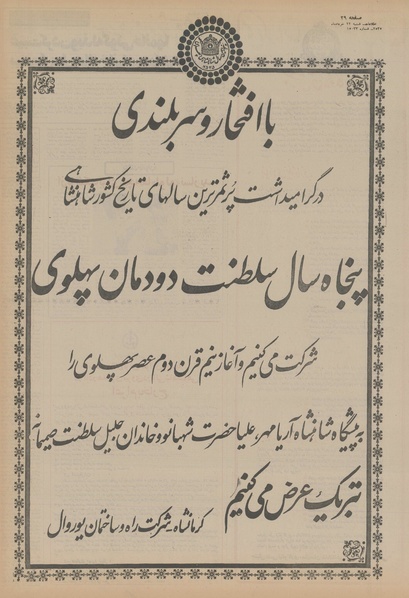 صفحه ۲۹
با افتخار و سر بلندی
در گرامیداشت پُر ثمرترین سالهای تاریخ کشور شاهنشاهی
پنجاه سال سلطنت دودمان پهلوی
شرکت می کنیم و آغاز نیم قرن دوم عصر پهلوی را
به پیشگاه شاهنشاه آریامهر، علیا حضرت شهبانو و خاندان جلیل سلطنت صمیمانه
تبریک عرض می کنیم
کرمانشاه - شرکت راه و ساختمان یوروال